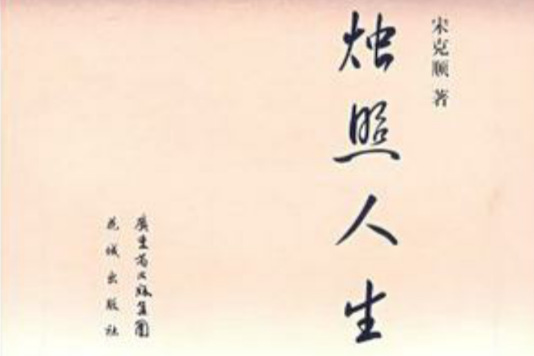 宋克顺 著
烛照人生
广东省出版集团
花城出版社